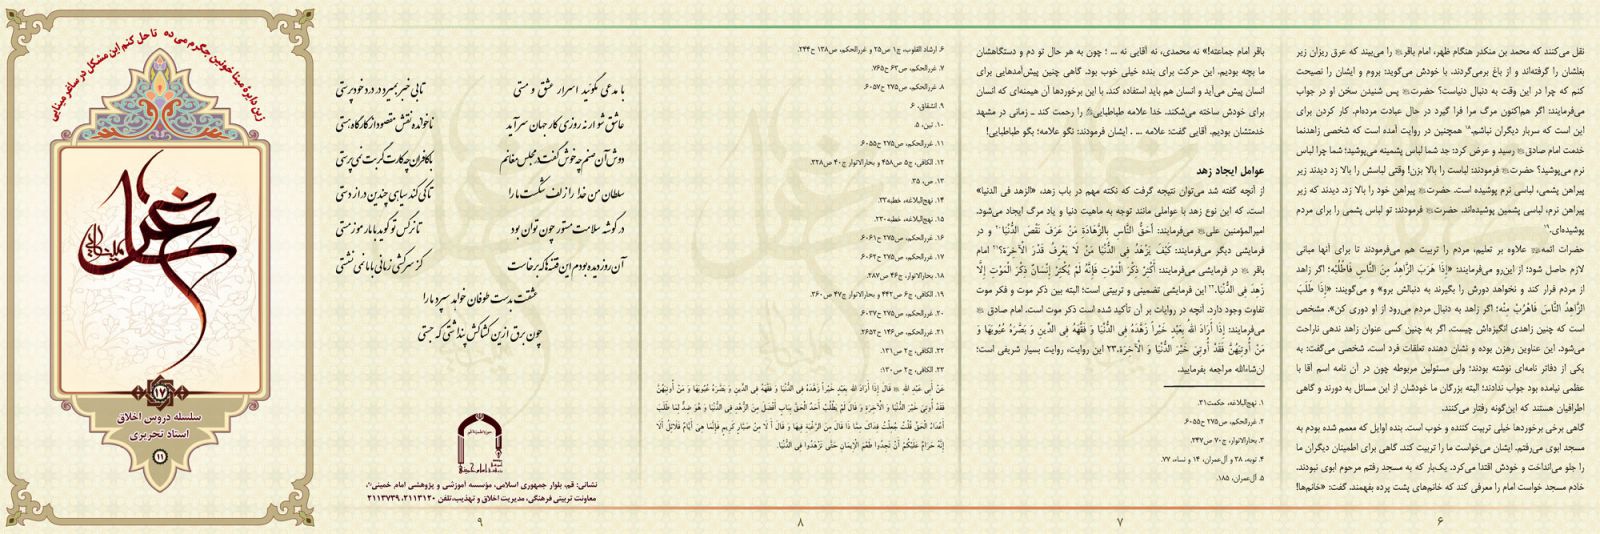 نقل می‌کنند که محمد بن منکدر هنگام ظهر، امام باقر را می‌بیند که عرق ریزان زیر
بغلشان را گرفته‌اند و از باغ برمی‌گردند. با خودش می‌گوید: بروم و ایشان را نصیحت
کنم که چرا در این وقت به دنبال دنیاست؟ حضرت پس شنیدن سخن او در جواب
می‌فرمایند: اگر هم‌اکنون مرگ مرا فرا گیرد در حال عبادت مرده‌ام. کار کردن برای
این است که سربار دیگران نباشم. همچنین در روایت آمده است که شخصی زاهدنما
خدمت امام صادق رسید و عرض کرد: جد شما لباس پشمینه می‌پوشید؛ شما چرا لباس
نرم می‌پوشید؟ حضرت فرمودند: لباست را بالا بزن! وقتی لباسش را بالا زد دیدند زیر
پیراهن پشمی، لباسی نرم پوشیده است. حضرت پیراهن خود را بالا زد، دیدند که زیر
پیراهن نرم، لباسی پشمین پوشیده‌اند. حضرت فرمودند: تو لباس پشمی را برای مردم
پوشیده‌ای.
حضرات ائمه علاوه بر تعلیم، مردم را تربیت هم می‌فرمودند تا برای آنها مبانی
لازم حاصل شود؛ از این‌رو می‌فرمایند: «إِذَا هَرَبَ الزَّاهِدُ مِنَ النَّاسِ فَاطْلُبْهُ»؛ اگر زاهد
از مردم فرار کند و نخواهد دورش را بگیرند به دنبالش برو» و می‌گویند: «إِذَا طَلَبَ
الزَّاهِدُ النَّاسَ فَاهْرُبْ مِنْهُ؛ اگر زاهد به دنبال مردم می‌رود از او دوری کن». مشخص
است که چنین زاهدی انگیزه‌اش چیست. اگر به چنین کسی عنوان زاهد ندهی ناراحت
می‌شود. این عناوین رهزن بوده و نشان دهنده تعلقات فرد است. شخصی می‌گفت: به
یکی از دفاتر نامه‌ای نوشته بودند؛ ولی مسئولین مربوطه چون در آن نامه اسم آقا با
عظمی نیامده بود جواب ندادند؛ البته بزرگان ما خودشان از این مسائل به دورند و گاهی
اطرافیان هستند که این‌گونه رفتار می‌کنند.
گاهی برخی برخوردها خیلی تربیت کننده و خوب است. بنده اوایل که معمم شده بودم به
مسجد ابوی می‌رفتم. ایشان می‌خواست ما را تربیت کند. گاهی برای اطمینان دیگران ما
را جلو می‌انداخت و خودش اقتدا می‌کرد. یک‌بار که به مسجد رفتم مرحوم ابوی نبودند.
خادم مسجد خواست امام را معرفی کند که خانم‌های پشت پرده بفهمند. گفت: «خانم‌ها!
۶
باقر امام جماعته!» نه محمدی، نه آقایی نه ... ؛ چون به هر حال تو دم و دستگاهشان
ما بچه بودیم. این حرکت برای بنده خیلی خوب بود. گاهی چنین پیش‌آمدهایی برای
انسان پیش می‌آید و انسان هم باید استفاده کند. با این برخوردها آن هیمنه‌ای که انسان
برای خودش ساخته می‌شکند. خدا علامه طباطبایی را رحمت کند ـ زمانی در مشهد
خدمتشان بودیم. آقایی گفت: علامه ... ، ایشان فرمودند: نگو علامه؛ بگو طباطبایی!
عوامل ایجاد زهد
از آنچه گفته شد می‌توان نتیجه گرفت که نکته مهم در باب زهد، «الزهد فی الدنیا»
است. که این نوع زهد با عواملی مانند توجه به ماهیت دنیا و یاد مرگ ایجاد می‌شود.
امیرالمؤمنین علی می‌فرمایند: أَحَقُّ النَّاسِ بِالزَّهَادَةِ مَنْ عَرَفَ نَقْصَ الدُّنْیَا و در
فرمایشی دیگر می‌فرمایند: کَیْفَ یَزْهَدُ فِی الدُّنْیَا مَنْ لَا یَعْرِفُ قَدْرَ الْآخِرَةِ؟ امام
باقر در فرمایشی می‌فرمایند: أَکْثِرْ ذِکْرَ الْمَوْتِ فَإِنَّهُ لَمْ یُکْثِرْ إِنْسَانٌ ذِکْرَ الْمَوْتِ إِلَّا
زَهِدَ فِی الدُّنْیَا. این فرمایشی تضمینی و تربیتی است؛ البته بین ذکر موت و فکر موت
تفاوت وجود دارد. آنچه در روایات بر آن تأکید شده است ذکر موت است. امام صادق
می‌فرمایند: إِذَا أَرَادَ اللَّهُ بِعَبْدٍ خَیْراً زَهَّدَهُ فِی الدُّنْیَا وَ فَقَّهَهُ فِی الدِّینِ وَ بَصَّرَهُ عُیُوبَهَا وَ
مَنْ أُوتِیَهُنَّ فَقَدْ أُوتِیَ خَیْرَ الدُّنْیَا وَ الْآخِرَةِ.۲۳ این روایت، روایت بسیار شریفی است؛
ان‌شاءالله مراجعه بفرمایید.
۱. نهج‌البلاغه، حکمت۳۱.
۲. غررالحکم، ص۲۷۵ ح۶۰۵۵.
۳. بحارالانوار، ج۷۰ ص۲۴۷.
۴. توبه، ۳۸ و آل‌عمران، ۱۴ و نساء، ۷۷.
۵. آل‌عمران، ۱۸۵.
۷
۶. ارشاد القلوب، ج۱ ص۲۵ و غررالحکم، ص۱۳۸ ح۲۴۴.
۷. غررالحکم، ص۶۳ ح۷۶۵.
۸. غررالحکم، ص۲۷۵ ح۶۰۵۷.
۹. انشقاق، ۶.
۱۰. تین، ۵.
۱۱. غررالحکم، ص۲۷۵ ح۶۰۵۵.
۱۲. الکافی، ج۵ ص۴۵۸ و بحارالانوار ج۴۰ ص۳۲۸.
۱۳. ص، ۳۵.
۱۴. نهج‌البلاغه، خطبه۳۲.
۱۵. نهج‌البلاغه، خطبه۲۳۰.
۱۶. غررالحکم، ص۲۷۵ ح۶۰۶۱.
۱۷. غررالحکم، ص۲۷۵ ح۶۰۶۲.
۱۸. بحارالانوار، ج۴۶ ص۲۸۷.
۱۹. الکافی، ج۶ ص۴۴۲ و بحارالانوار ج۴۷ ص۳۶۰.
۲۰. غررالحکم، ص۲۷۵ ح۶۰۳۷.
۲۱. غررالحکم، ص۱۴۶ ح۲۶۵۲.
۲۲. الکافی، ج۲ ص۱۳۱.
۲۳. الکافی، ج۲ ص۱۳۰:
عَنْ أَبِی عَبْدِ اللَّهِ قَالَ إِذَا أَرَادَ اللَّهُ بِعَبْدٍ خَیْراً زَهَّدَهُ فِی الدُّنْیَا وَ فَقَّهَهُ فِی الدِّینِ وَ بَصَّرَهُ عُیُوبَهَا وَ مَنْ أُوتِیَهُنَّ
فَقَدْ أُوتِیَ خَیْرَ الدُّنْیَا وَ الْآخِرَةِ وَ قَالَ لَمْ یَطْلُبْ أَحَدٌ الْحَقَّ بِبَابٍ أَفْضَلَ مِنَ الزُّهْدِ فِی الدُّنْیَا وَ هُوَ ضِدٌّ لِمَا طَلَبَ
أَعْدَاءُ الْحَقِّ قُلْتُ جُعِلْتُ فِدَاکَ مِمَّا ذَا قَالَ مِنَ الرَّغْبَةِ فِیهَا وَ قَالَ أَ لَا مِنْ صَبَّارٍ کَرِیمٍ فَإِنَّمَا هِیَ أَیَّامٌ قَلَائِلُ أَلَا
إِنَّهُ حَرَامٌ عَلَیْکُمْ أَنْ تَجِدُوا طَعْمَ الْإِیمَانِ حَتَّی تَزْهَدُوا فِی الدُّنْیَا.
۸
با مدعی مگویید اسرار عشق و مستی تا بی خبر بمیرد در درد خودپرستی
عاشق شو ار نه روزی کار جهان سرآید ناخوانده نقش مقصود از کارگاه هستی
دوش آن صنم چه خوش گفت در مجلس مغانم با کافران چه کارت گر بت نمی‌پرستی
سلطان من خدا را زلفت شکست ما را تا کی کند سیاهی چندین درازدستی
در گوشه سلامت مستور چون توان بود تا نرگس تو گوید با ما رموز مستی
آن روز دیده بودم این فتنه‌ها که برخاست کز سرکشی زمانی با ما نمی‌نشستی
عشقت به دست طوفان خواهد سپرد ما را
چون برق ازین کشاکش پنداشتی که جستی
نشانی: قم، بلوار جمهوری اسلامی، مؤسسه آموزشی و پژوهشی امام خمینی
معاونت تربیتی فرهنگی، مدیریت اخلاق و تهذیب،تلفن ۲۱۱۳۱۲۰، ۲۱۱۳۷۳۹
۹
زین دایرهٔ مینا خونین جگرم می ده تا حل کنم این مشکل در ساغر مینایی
۱۷
سلسله دروس اخلاق
استاد تحریری
۱۱